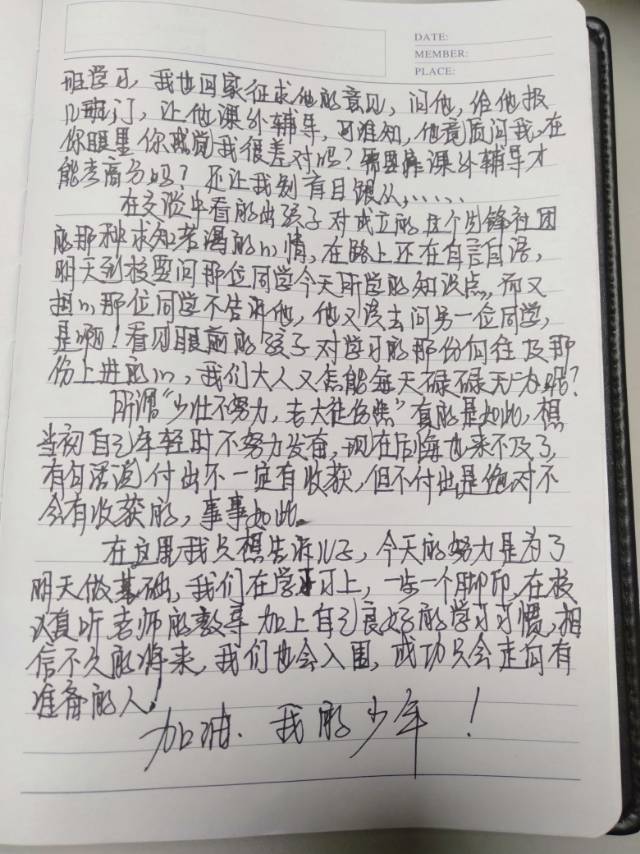 DATE:
MEMBER:
PLACE:
班学习，我也回家征求他的意见，问他，给他报
几班门，让他课外辅导，可谁知，他竟质问我。在
你眼里你感觉我很差对吗？需要靠课外辅导才
能考高分吗？还让我别盲目跟从，......
在交谈中看的出孩子对成立的这个先锋社团
的那种求知若渴的心情，在路上还在自言自语，
明天到校要问那位同学今天所学的知识点，而又
担心那位同学不告诉他，他又该去问另一位同学，
是啊！看见眼前的孩子对学习的那份向往及那
份上进的心，我们大人又怎能每天碌碌无为呢？
所谓“少壮不努力，老大徒伤悲”真的是如此，想
当初自己年轻时不努力发奋，现在后悔也来不及了，
有句话说付出不一定有收获，但不付出是绝对不
会有收获的，事事如此。
在这里我只想告诉儿子，今天的努力是为了
明天做基础，我们在学习上，一步一个脚印，在校
认真听老师的教导加上自己良好的学习习惯，相
信不久的将来，我们也会入围，成功只会走向有
准备的人！
加油．我的少年！